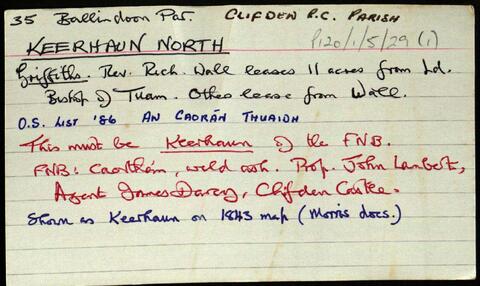 35 Ballindoon Par. CLIFDEN R.C. PARISH
P120/1/5/29 (1)
KEERHAUN NORTH
Griffiths. Rev. Rich. Wall leases 11 acres from Ld.
Bishop of Tuam. Others lease from Wall.
O.S. LIST '86 AN CAORÁN THUAIDH
This must be Keerhaun of the FNB.
FNB: Caorthán, wild ash. Prop. John Lambert,
Agent James Darcy, Clifden Castle.
Shown as Keerhaun on 1843 map (Morris docs.)